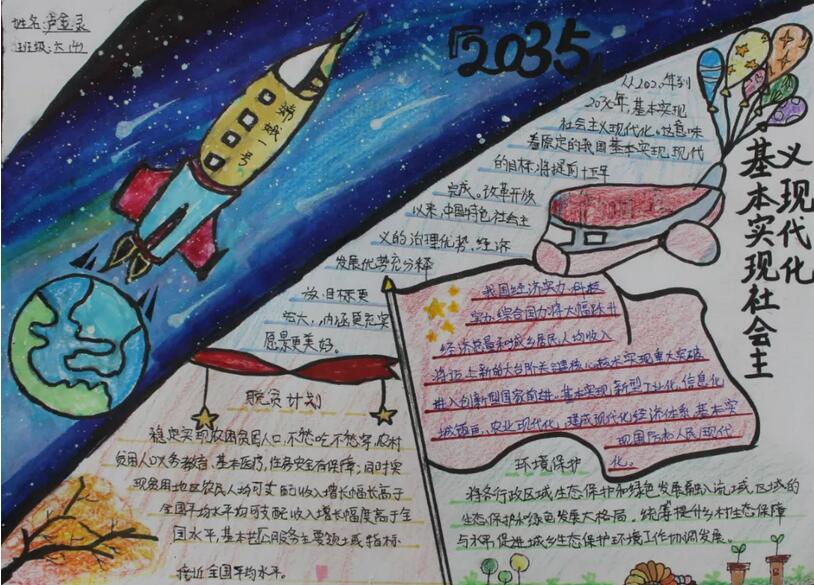 姓名:卢金灵
班级:六(4)
『2035』
嫦娥一号
从2020年到
20xx年,基本实现
社会主义现代化,这意味
着原定的我国基本实现现代
的目标将提前十五年
完成。改革开放
以来,中国特色社会主
义的治理优势、经济
发展优势充分释
放,目标更
宏大,内涵更充实
愿景更美好。
基本实现社会主
义现代化
我国经济实力、科技
实力、综合国力将大幅跃升
经济总量和城乡居民人均收入
将迈上新的大台阶关键核心技术实现重大突破
进入创新型国家前进。基本实现新型工业化、信息化
城镇化、农业现代化,建成现代化经济体系,基本实
现国防和人民现代
化。
脱贫计划
稳定实现农村贫困人口,不愁吃、不愁穿,农村
贫困人口义务教育、基本医疗,住房安全有保障;同时实
现贫困地区农民人均可支配收入增长幅长高于
全国平均水平均可支配收入增长幅度高于全
国水平,基本公共服务主要领域指标
接近全国平均水平。
环境保护
将各行政区域生态保护和绿色发展融入流域、区域的
生态保护和绿色发展大格局。统筹提升乡村生态保障
与水平,促进城乡生态保护环境工作协调发展。